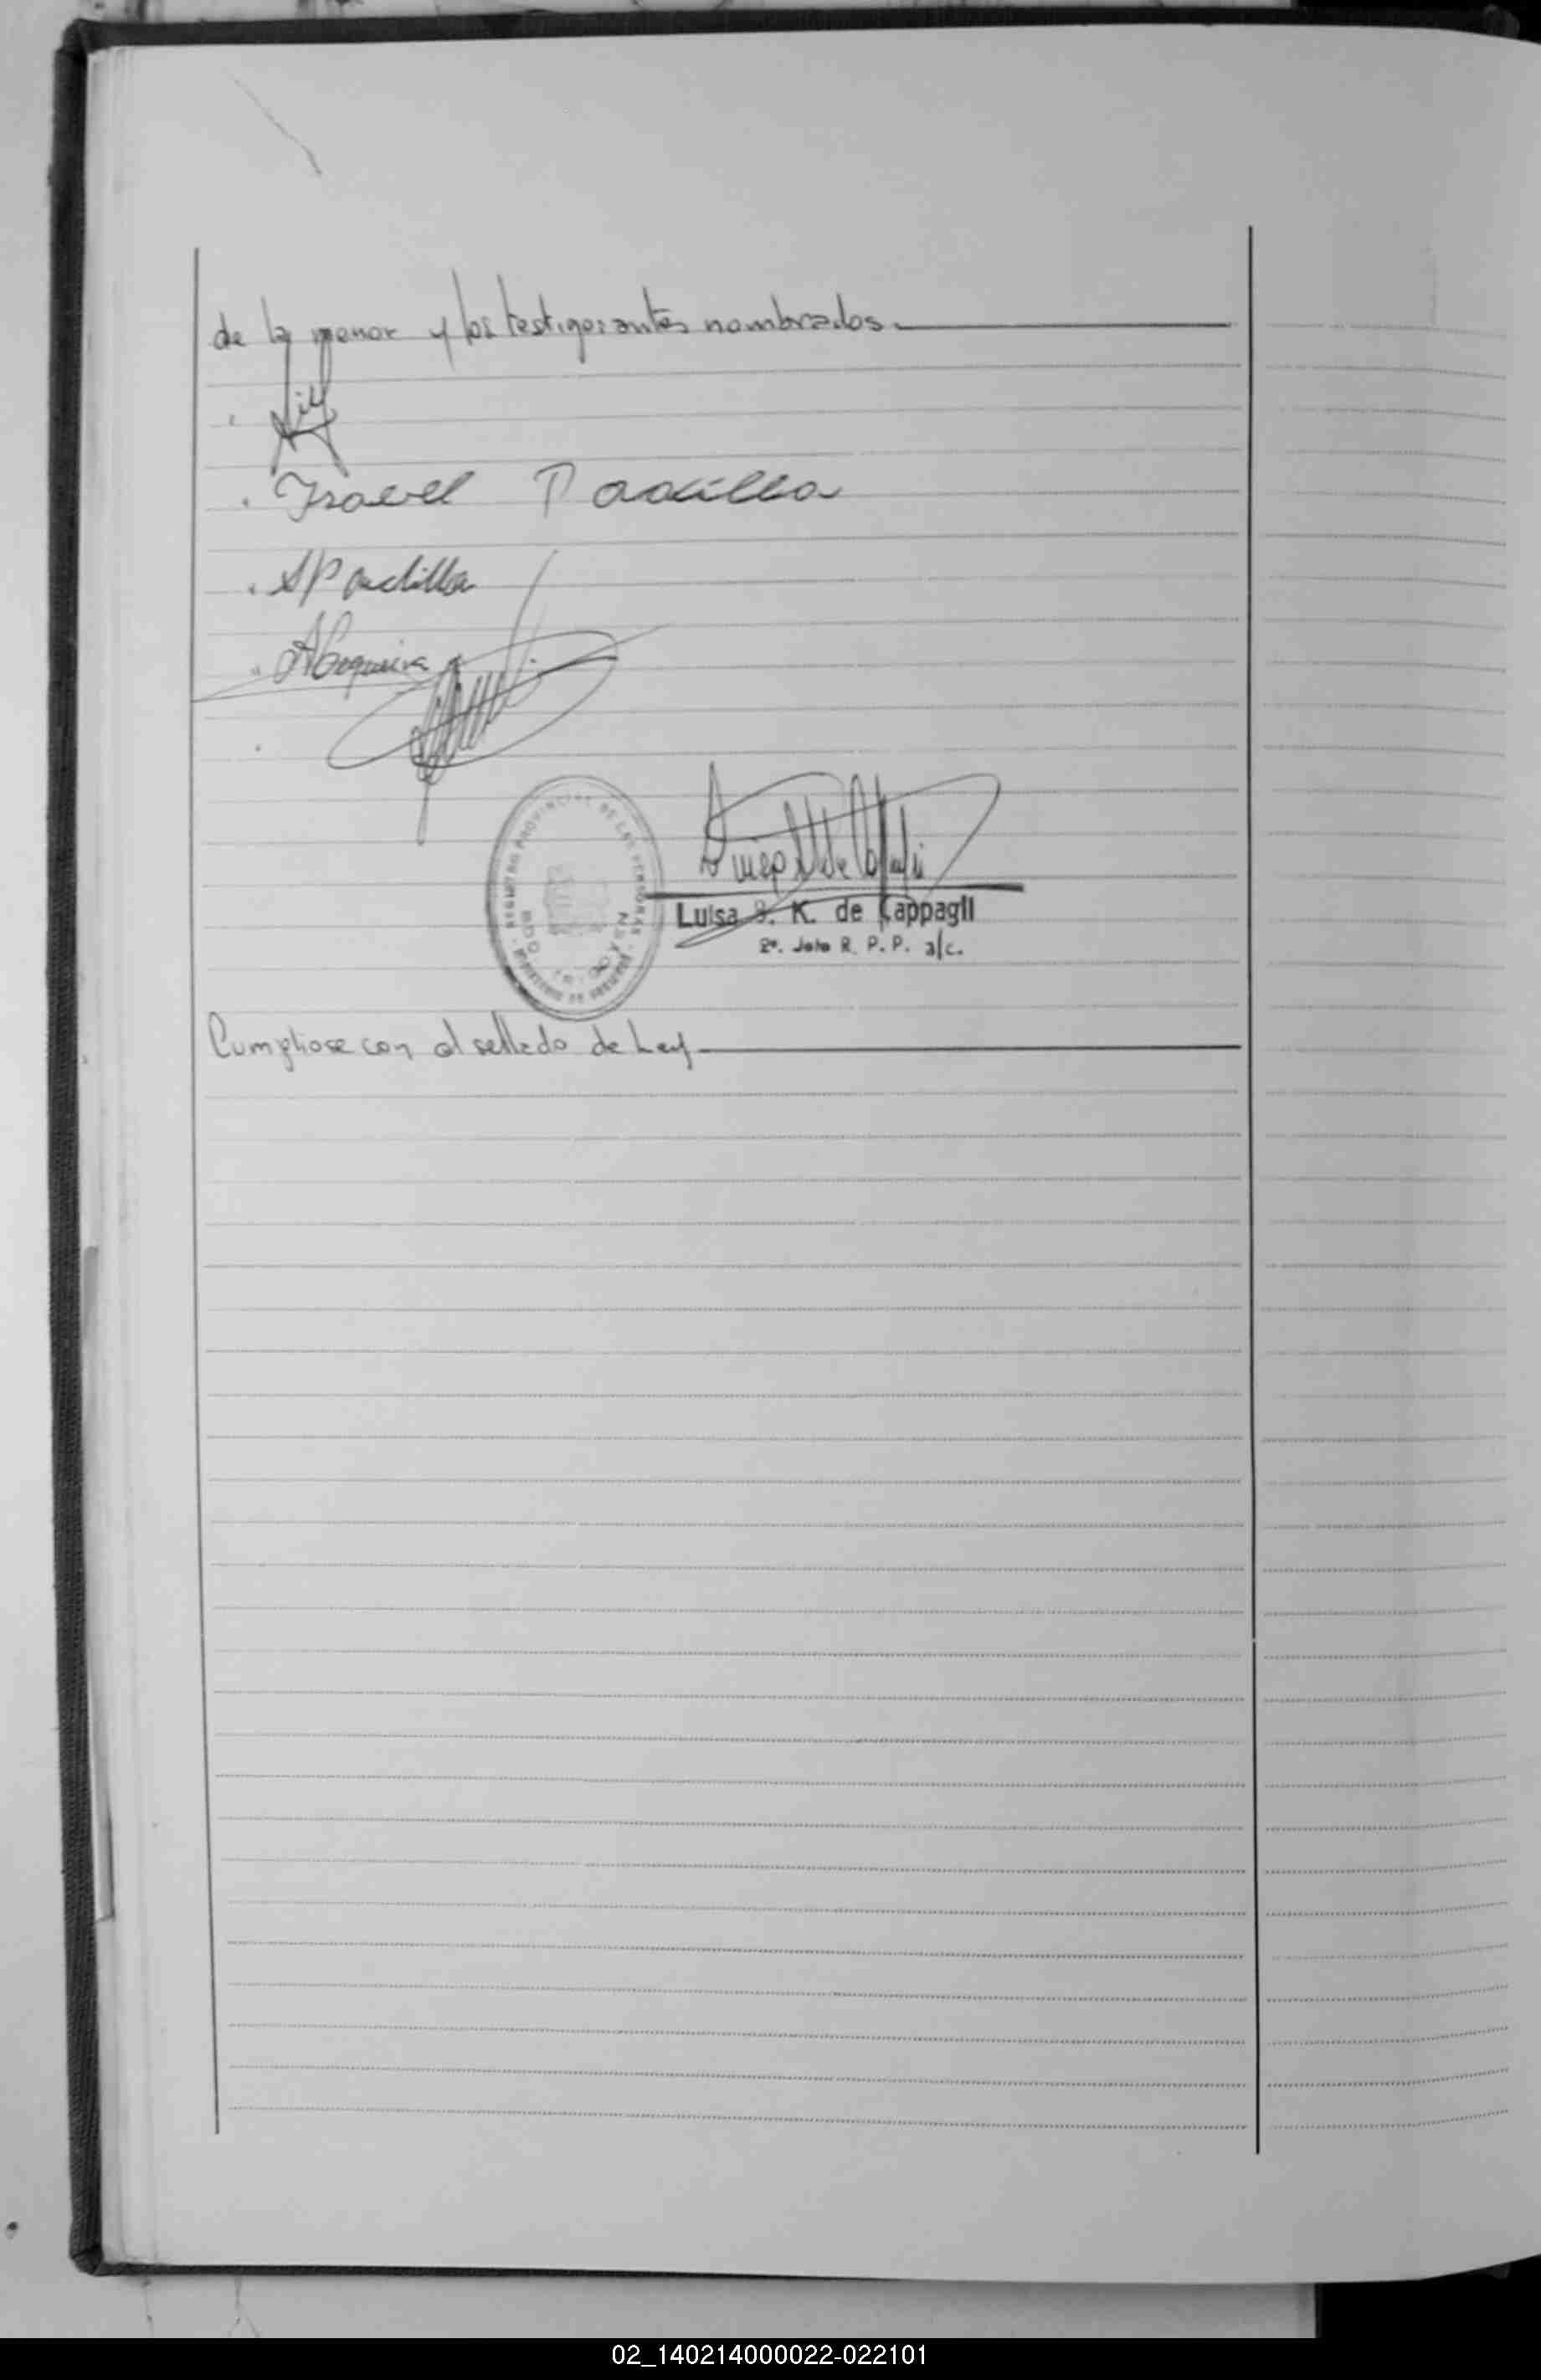 de la menor y los testigos antes nombrados.
Isavel Padilla
Padilla
REGISTRO PROVINCIAL DE LAS PERSONAS
Luisa S. K. de Cappagli
2º. Jefe R. P. P. a/c.
Cumpliose con el sellado de Ley
02_140214000022-022101